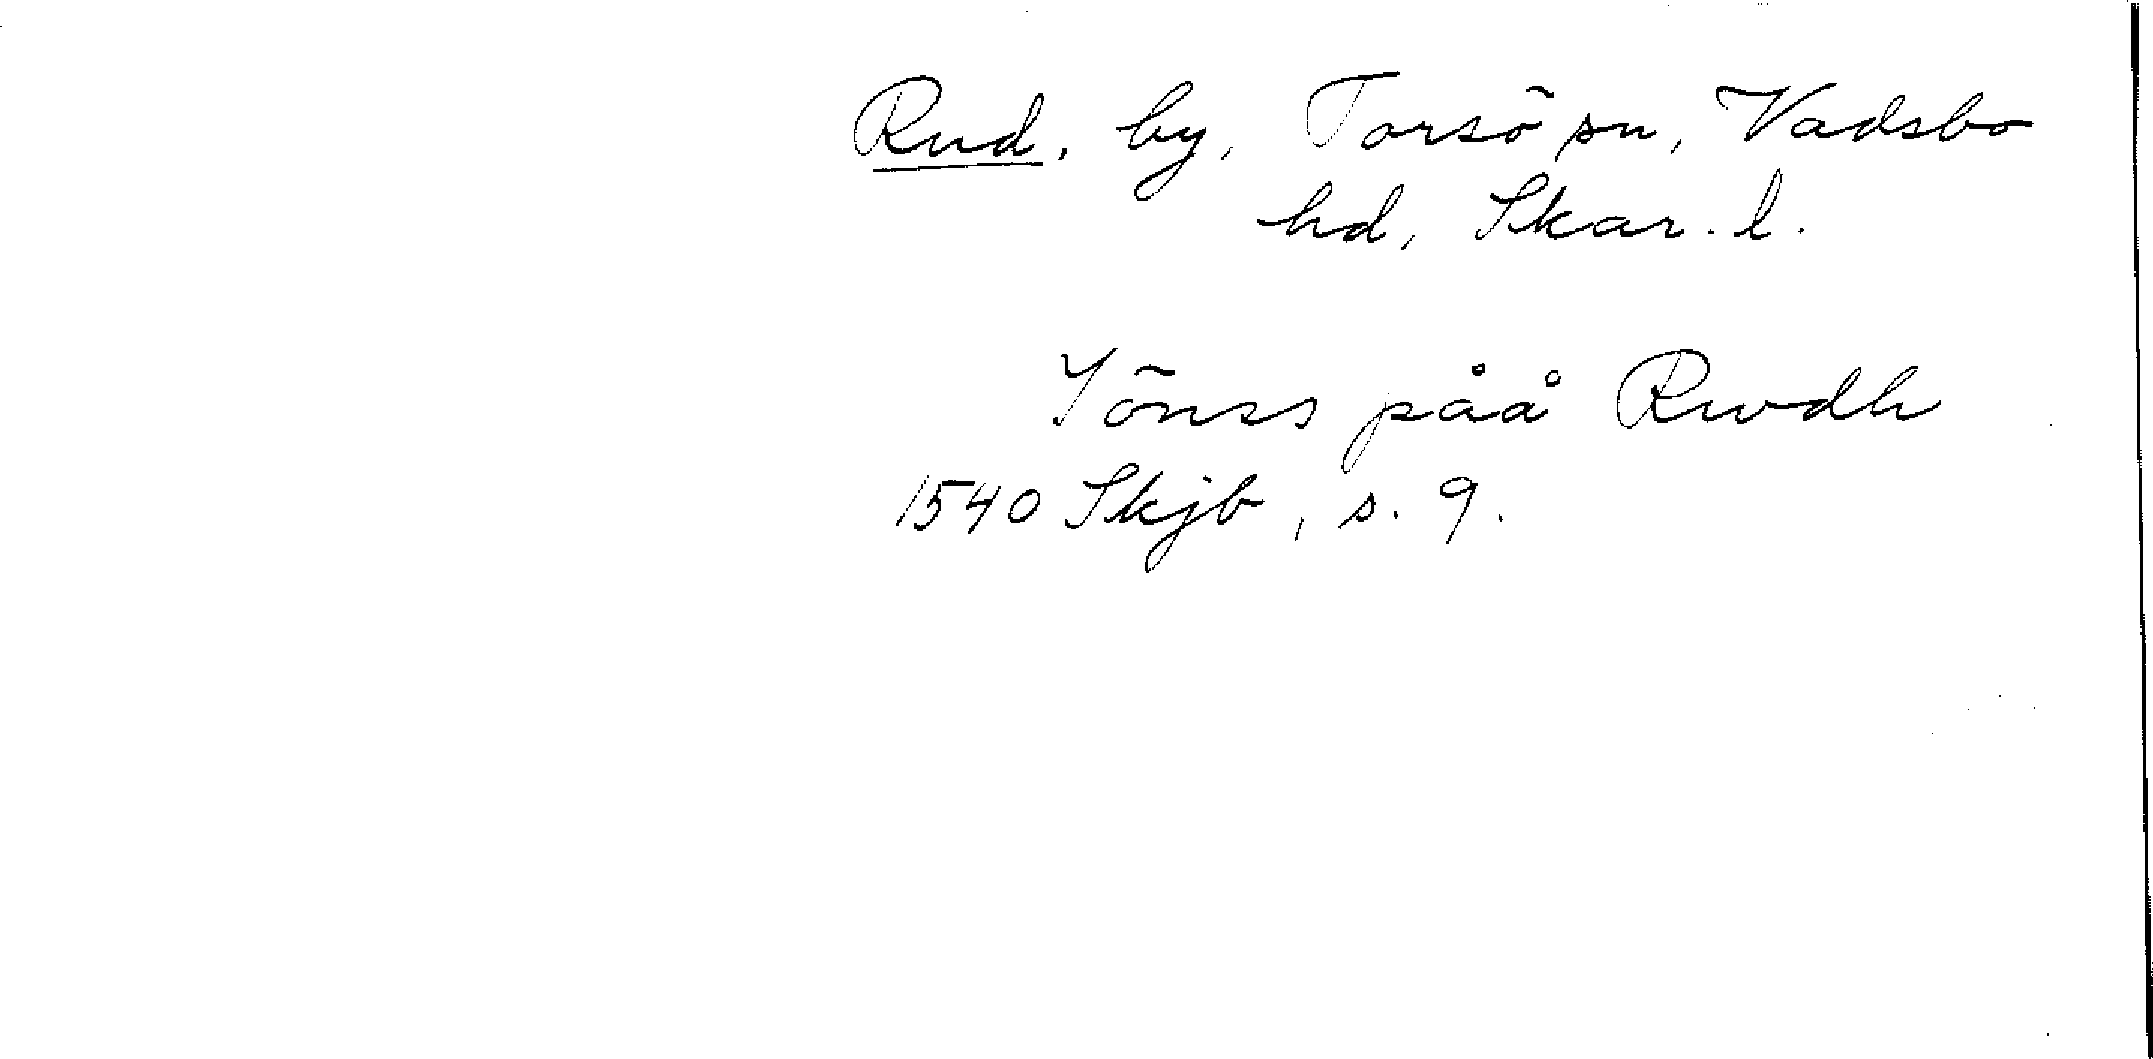 Rud, by, Torsö sn, Vadsbo
hd, Skar. l.
Jönss påå Rwdh
1540 Skjb, s. 9.